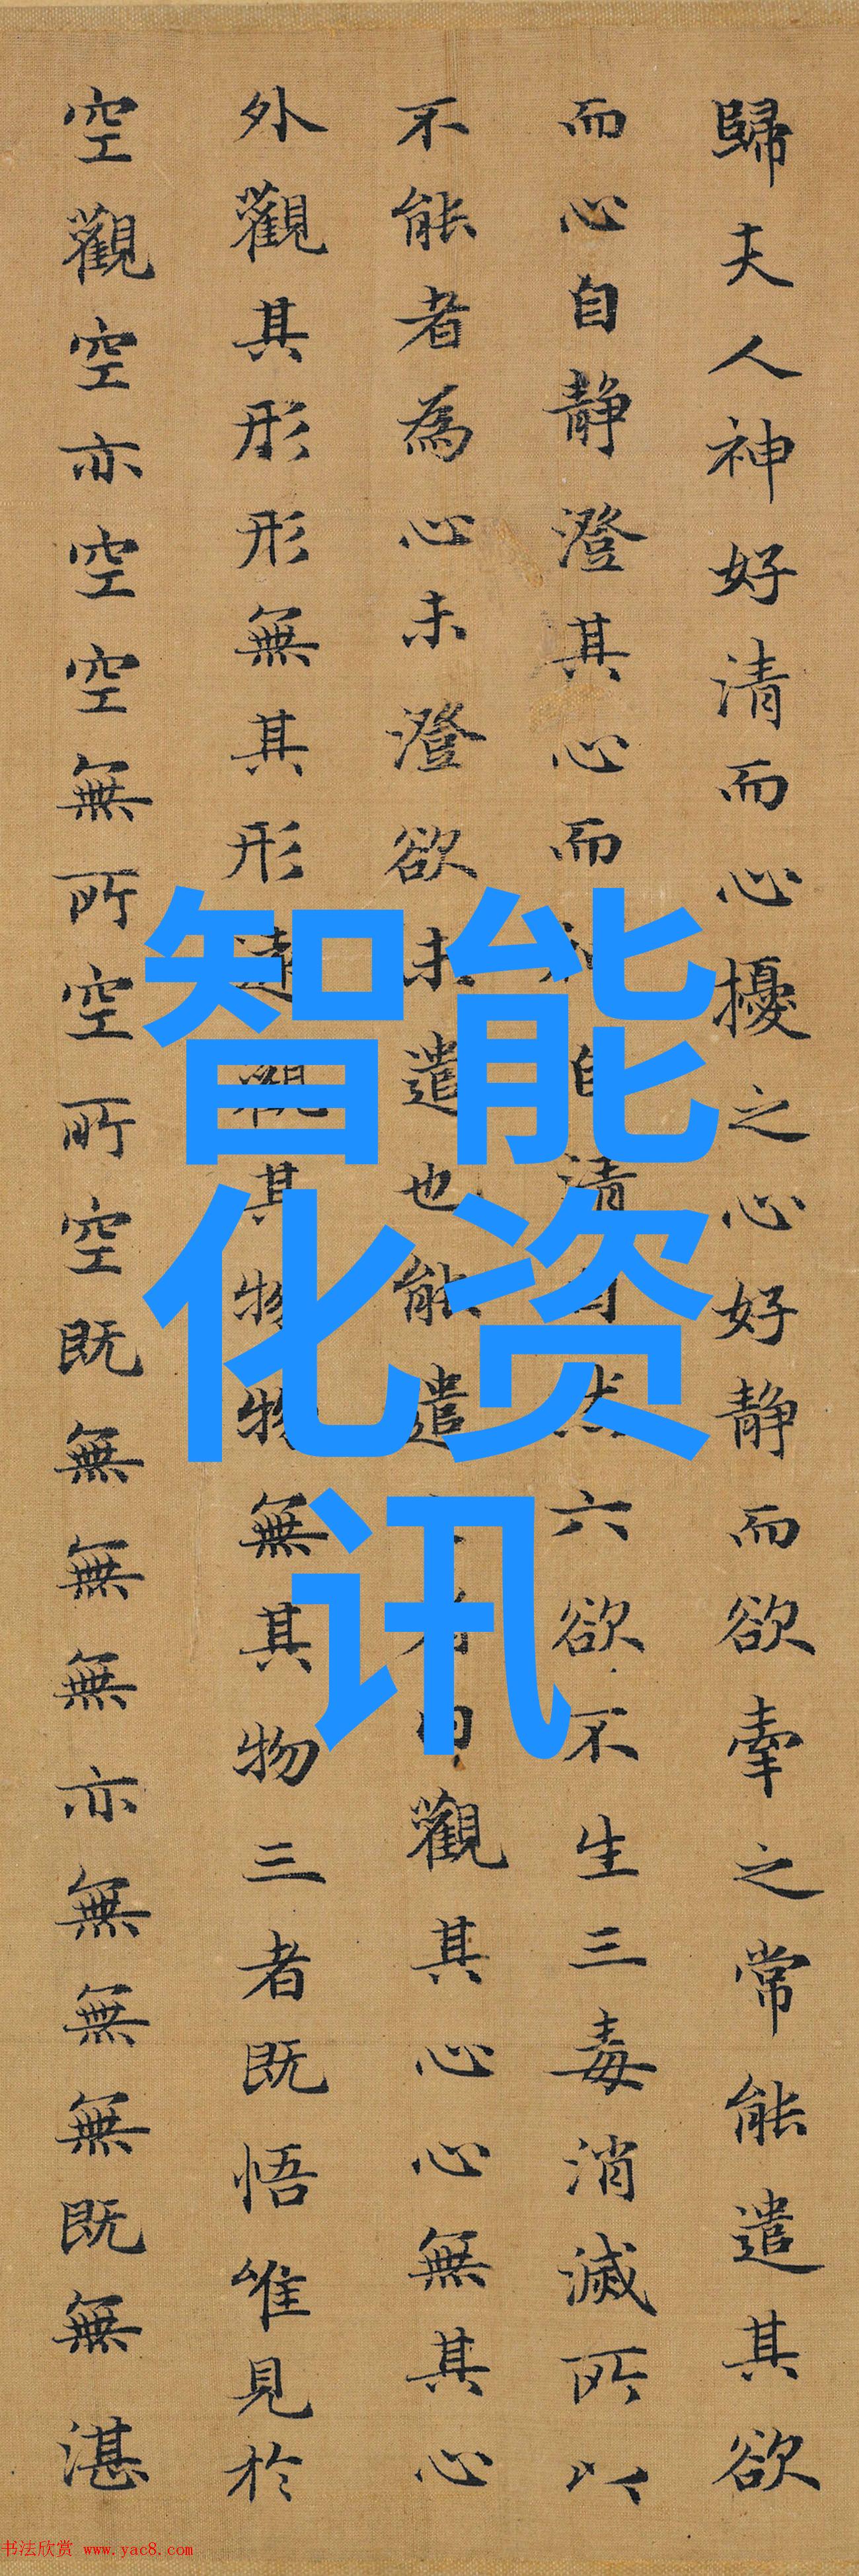 歸夫人神好清而心擾之心好静而欲牽之常能遣其欲
而心自静澄其心而自清自然六欲不生三毒消滅所以
不能者為心未澄欲未遣也能遣之者内觀其心心無其心
外觀其形形無其形遠觀其物物無其物三者既悟唯見於
空觀空亦空空無所空所空既無無無亦無無無既無湛
智能
化资
讯
书法欣赏 www.yac8.com